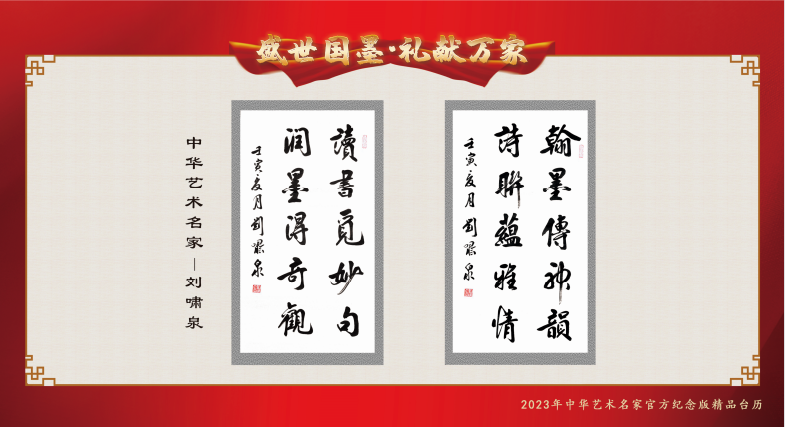 盛世国墨·礼献万家
中华艺术名家—刘啸泉
讀書覓妙句
润墨得奇觀
壬寅夏月劉
泉
翰墨傳神韻
詩聯蘊雅情
壬寅夏月劉
泉
2023年中华艺术名家官方纪念版精品台历